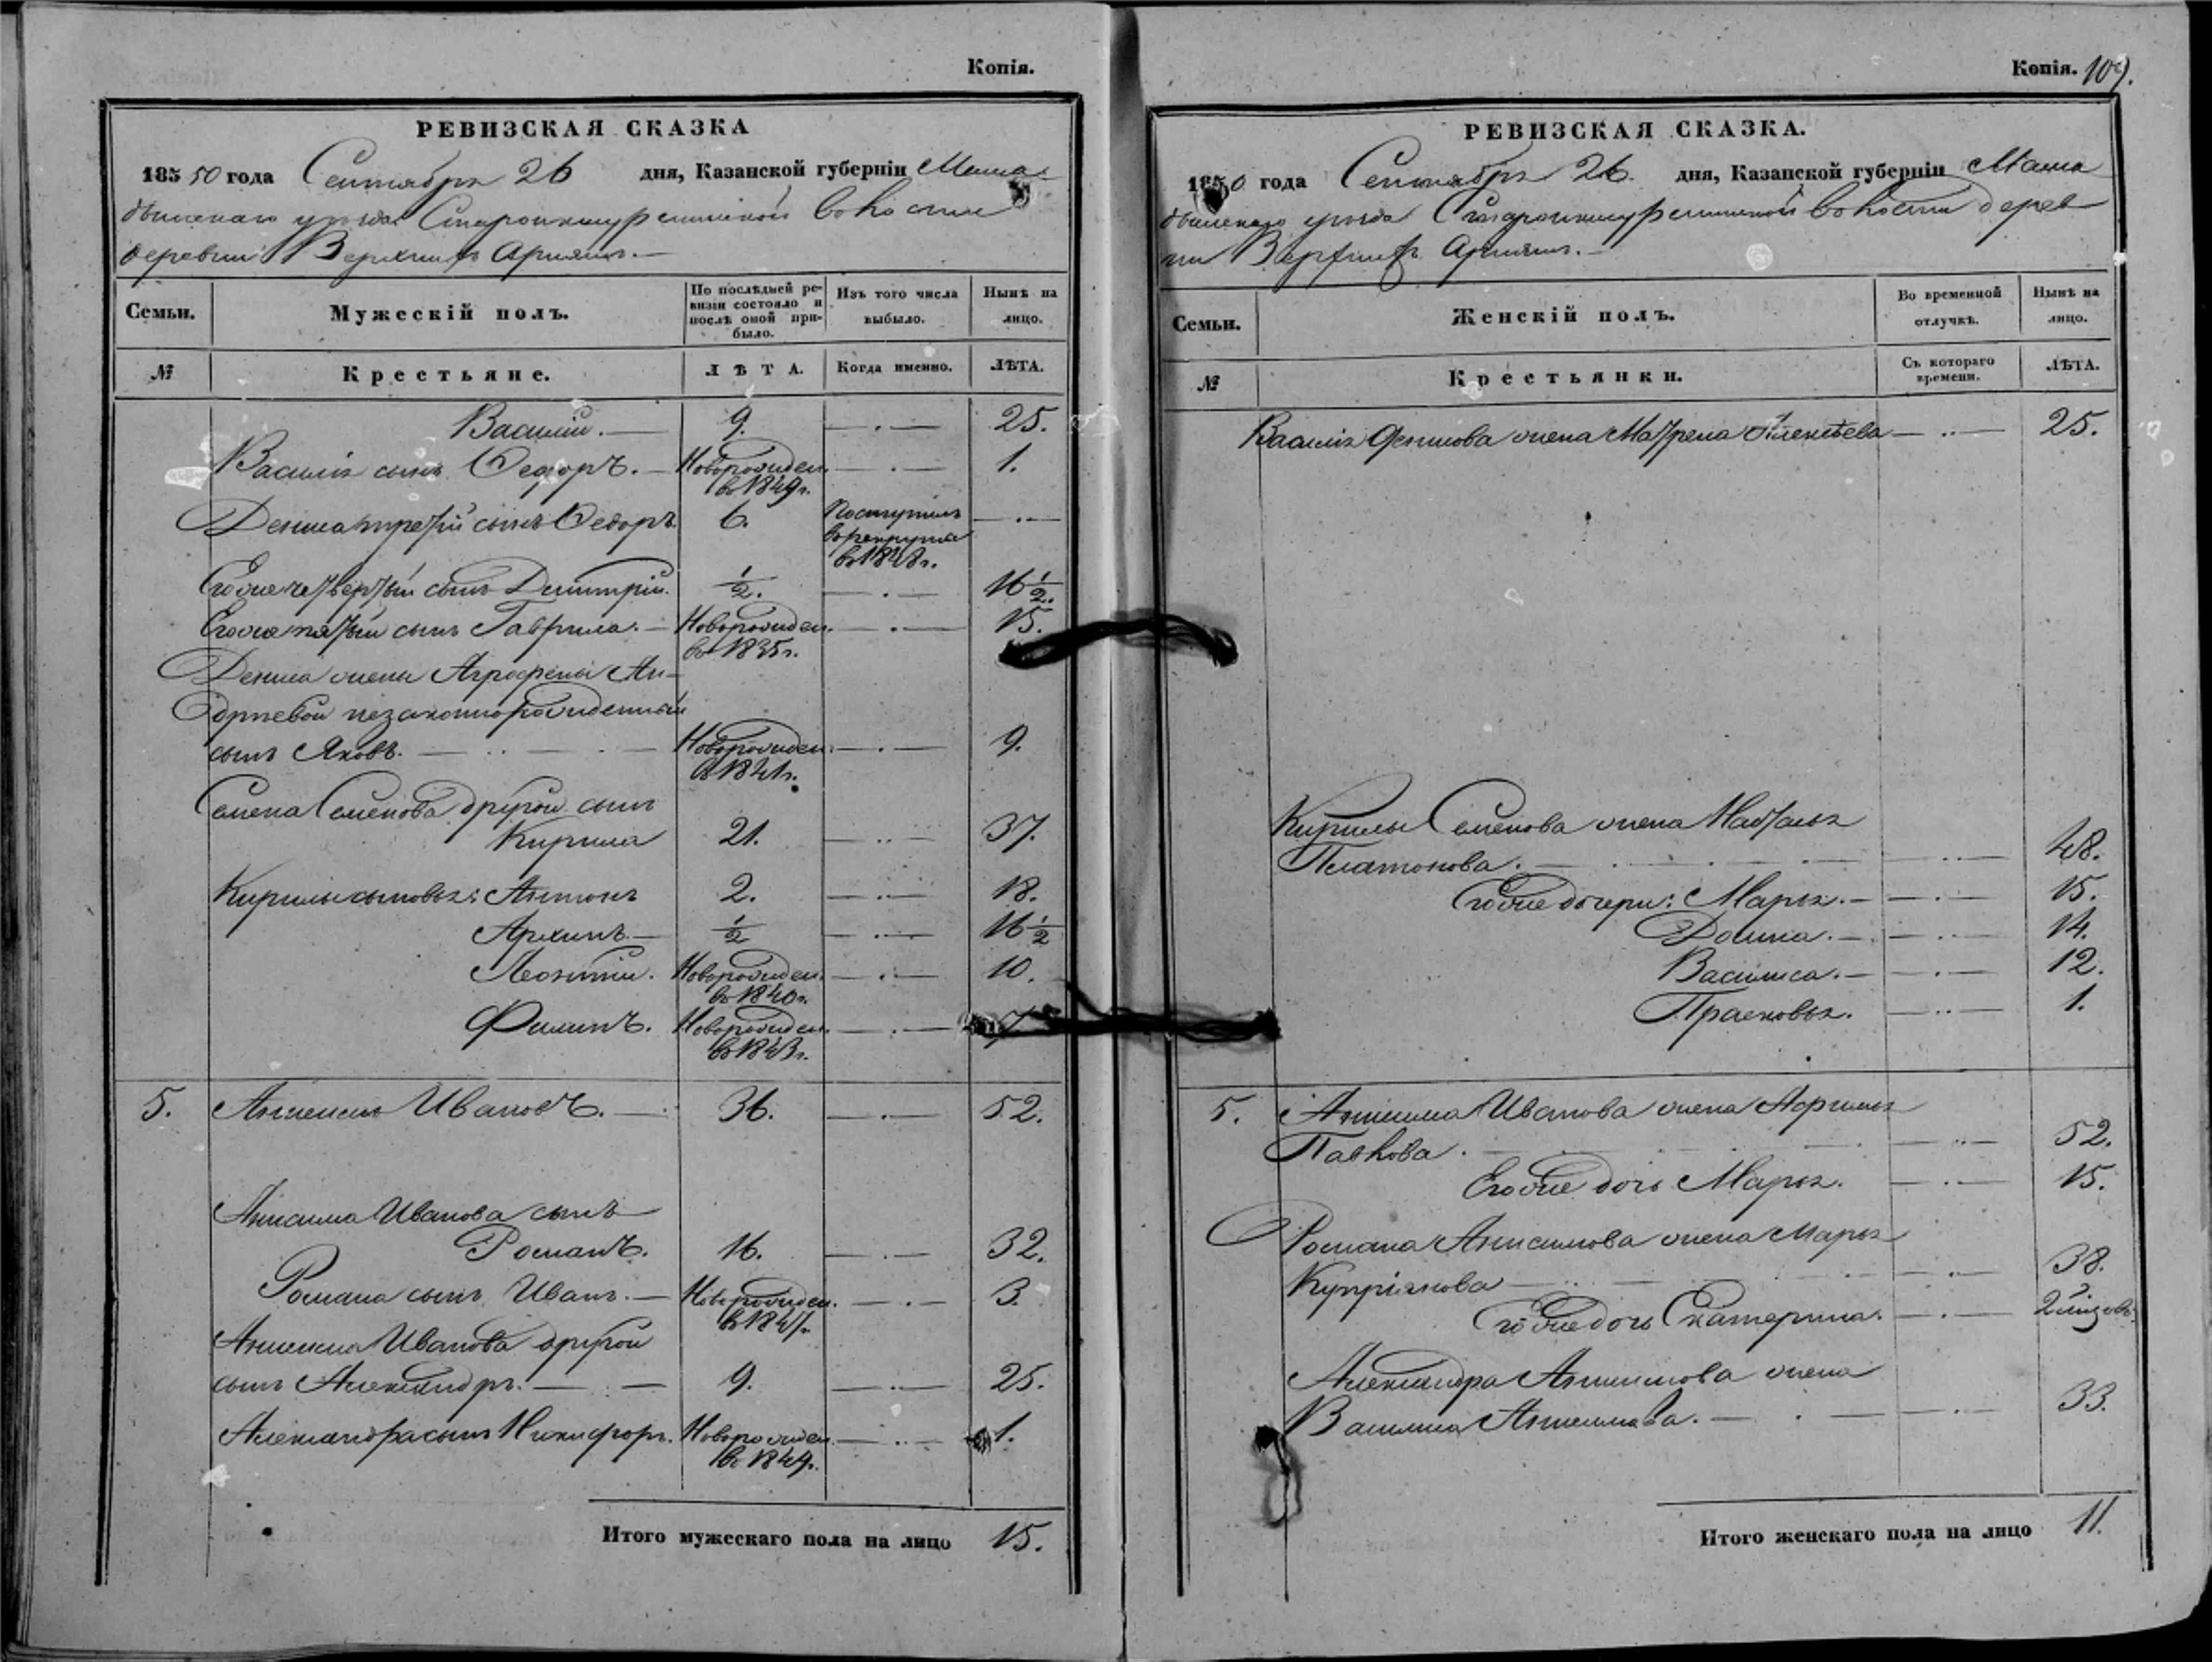 Копія.
РЕВИЗСКАЯ СКАЗКА
185 50 года Сентября 26 дня, Казанской губерніи Мама-
дышскаго уѣзда волости
деревни Верхнихъ
Семьи.
Мужескій полъ.
По послѣдней ре-
визіи состояло и
послѣ оной при-
было.
Изъ того числа
выбыло.
Нынѣ на
лицо.
№
Крестьяне.
ЛѢТА.
Когда именно.
ЛѢТА.
Василій. 9. 25.
Василія сынъ Ѳедоръ. Новорожден. 1.
въ 1849 г.
Дениса третій сынъ Ѳедоръ 6. Поступилъ
въ рекруты
въ 1848 г.
Его же четвертый сынъ Дмитрій. ½. 16½.
Его же пятый сынъ Гаврила. Новорожден. 15.
въ 1835 г.
Дениса жены Агрофены Ан-
дрѣевой незаконнорожденный
сынъ Яковъ. Новорожден. 9.
въ 1841 г.
Семена Семенова другой сынъ
Кирила 21. 37.
Кирилы сыновья: Антонъ 2. 18.
Архипъ ½ 16½
Леонтій. Новорожден. 10.
въ 1840 г.
Филипъ. Новорожден. 7
въ 1843 г.
5. Анисимъ Ивановъ. 36. 52.
Анисима Иванова сынъ
Романъ. 16. 32.
Романа сынъ Иванъ. Новорожден. 3.
въ 1847 г.
Анисима Иванова другой
сынъ Александръ. 9. 25.
Александра сынъ Никифоръ. Новорожден. 1.
въ 1849 г.
Итого мужескаго пола на лицо 15.
Копія. 109.
РЕВИЗСКАЯ СКАЗКА.
1850 года Сентября 26 дня, Казанской губерніи Мама
дышскаго уѣзда волости дерев
ни Верхнихъ
Семьи.
Женскій полъ.
Во временной
отлучкѣ.
Нынѣ на
лицо.
№
Крестьянки.
Съ котораго
времени.
ЛѢТА.
Василія Денисова жена Матрена Алексѣева 25.
Кирилы Семенова жена Наталья
Платонова. 48.
Его же дочери: Марья. 15.
Домна. 14.
Василиса. 12.
Прасковья. 1.
5. Анисима Иванова жена
Павлова. 52.
Его же дочь Марья. 15.
Романа Анисимова жена Марья
Купріянова 38.
Его же дочь Екатерина.
Александра Анисимова жена
33.
Итого женскаго пола на лицо 11.